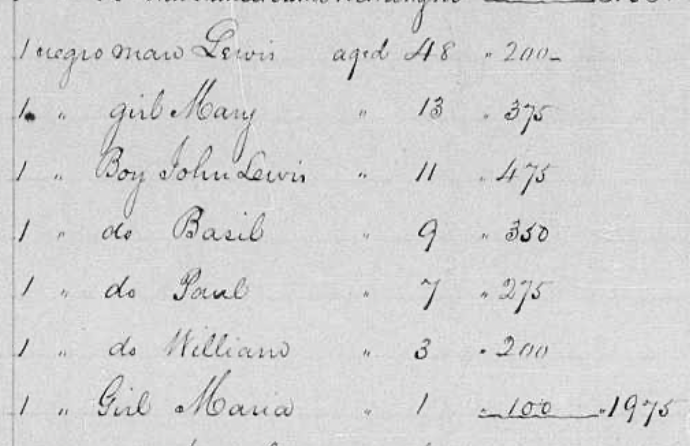 1 negro man Lewis aged 48 " 200-
1 " girl Mary " 13 " 375
1 " Boy John Lewis " 11 " 475
1 " do Basil " 9 " 350
1 " do Paul " 7 " 275
1 " do William " 3 " 200
1 " Girl Maria " 1 " 100 " 1975